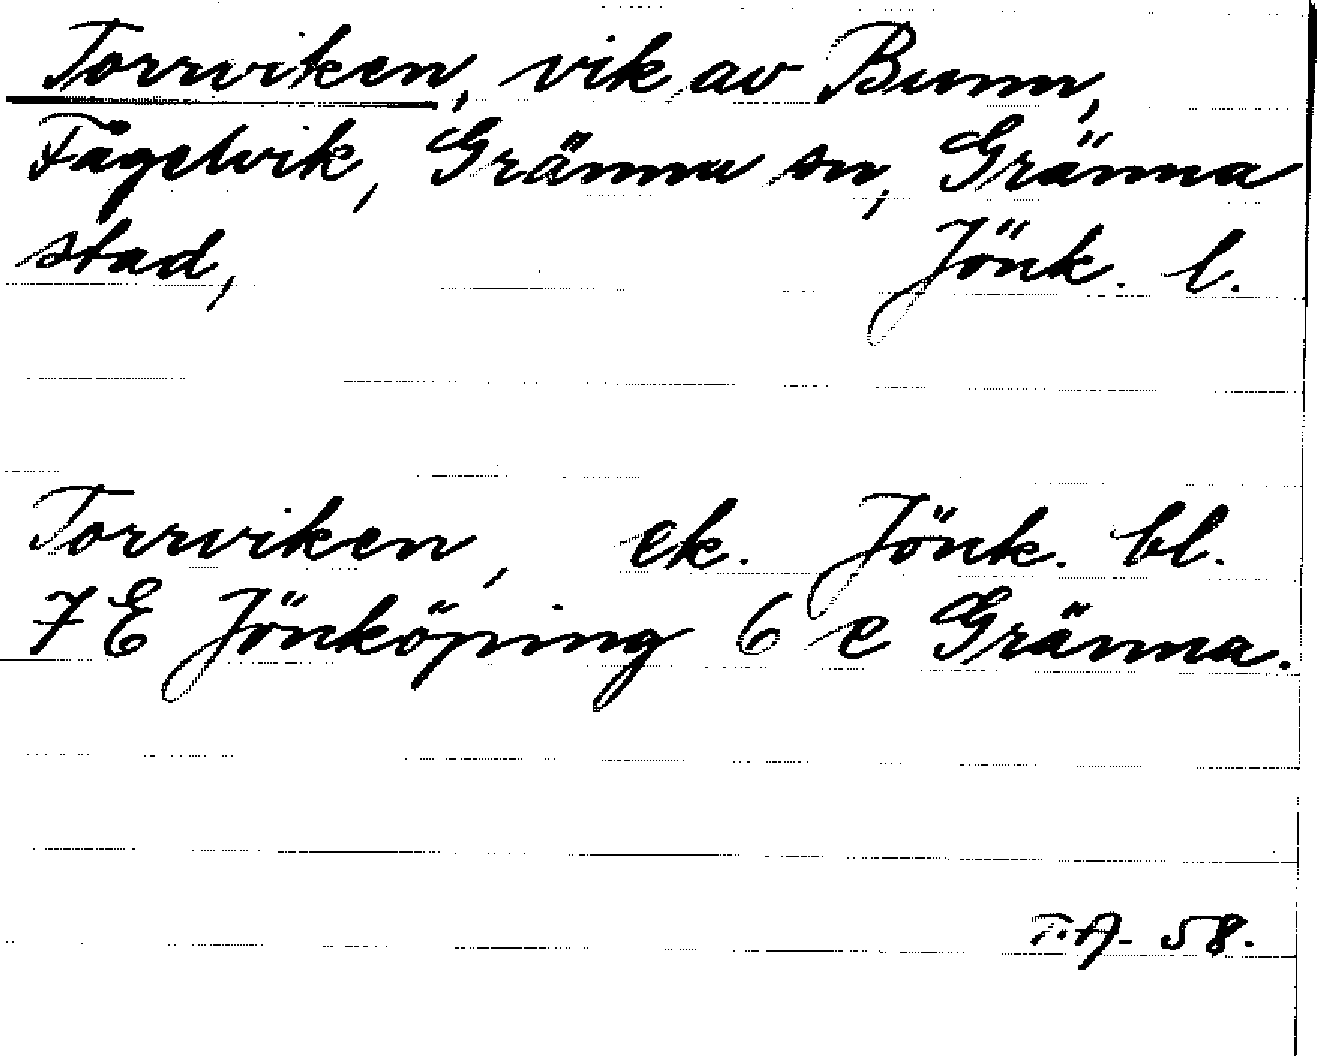 Torrviken, vik av Bunn,
Fågelvik, Gränna sn, Gränna
stad, Jönk. l.
Torrviken, ek. Jönk. bl.
7 E Jönköping 6 e Gränna.
T.A. 58.